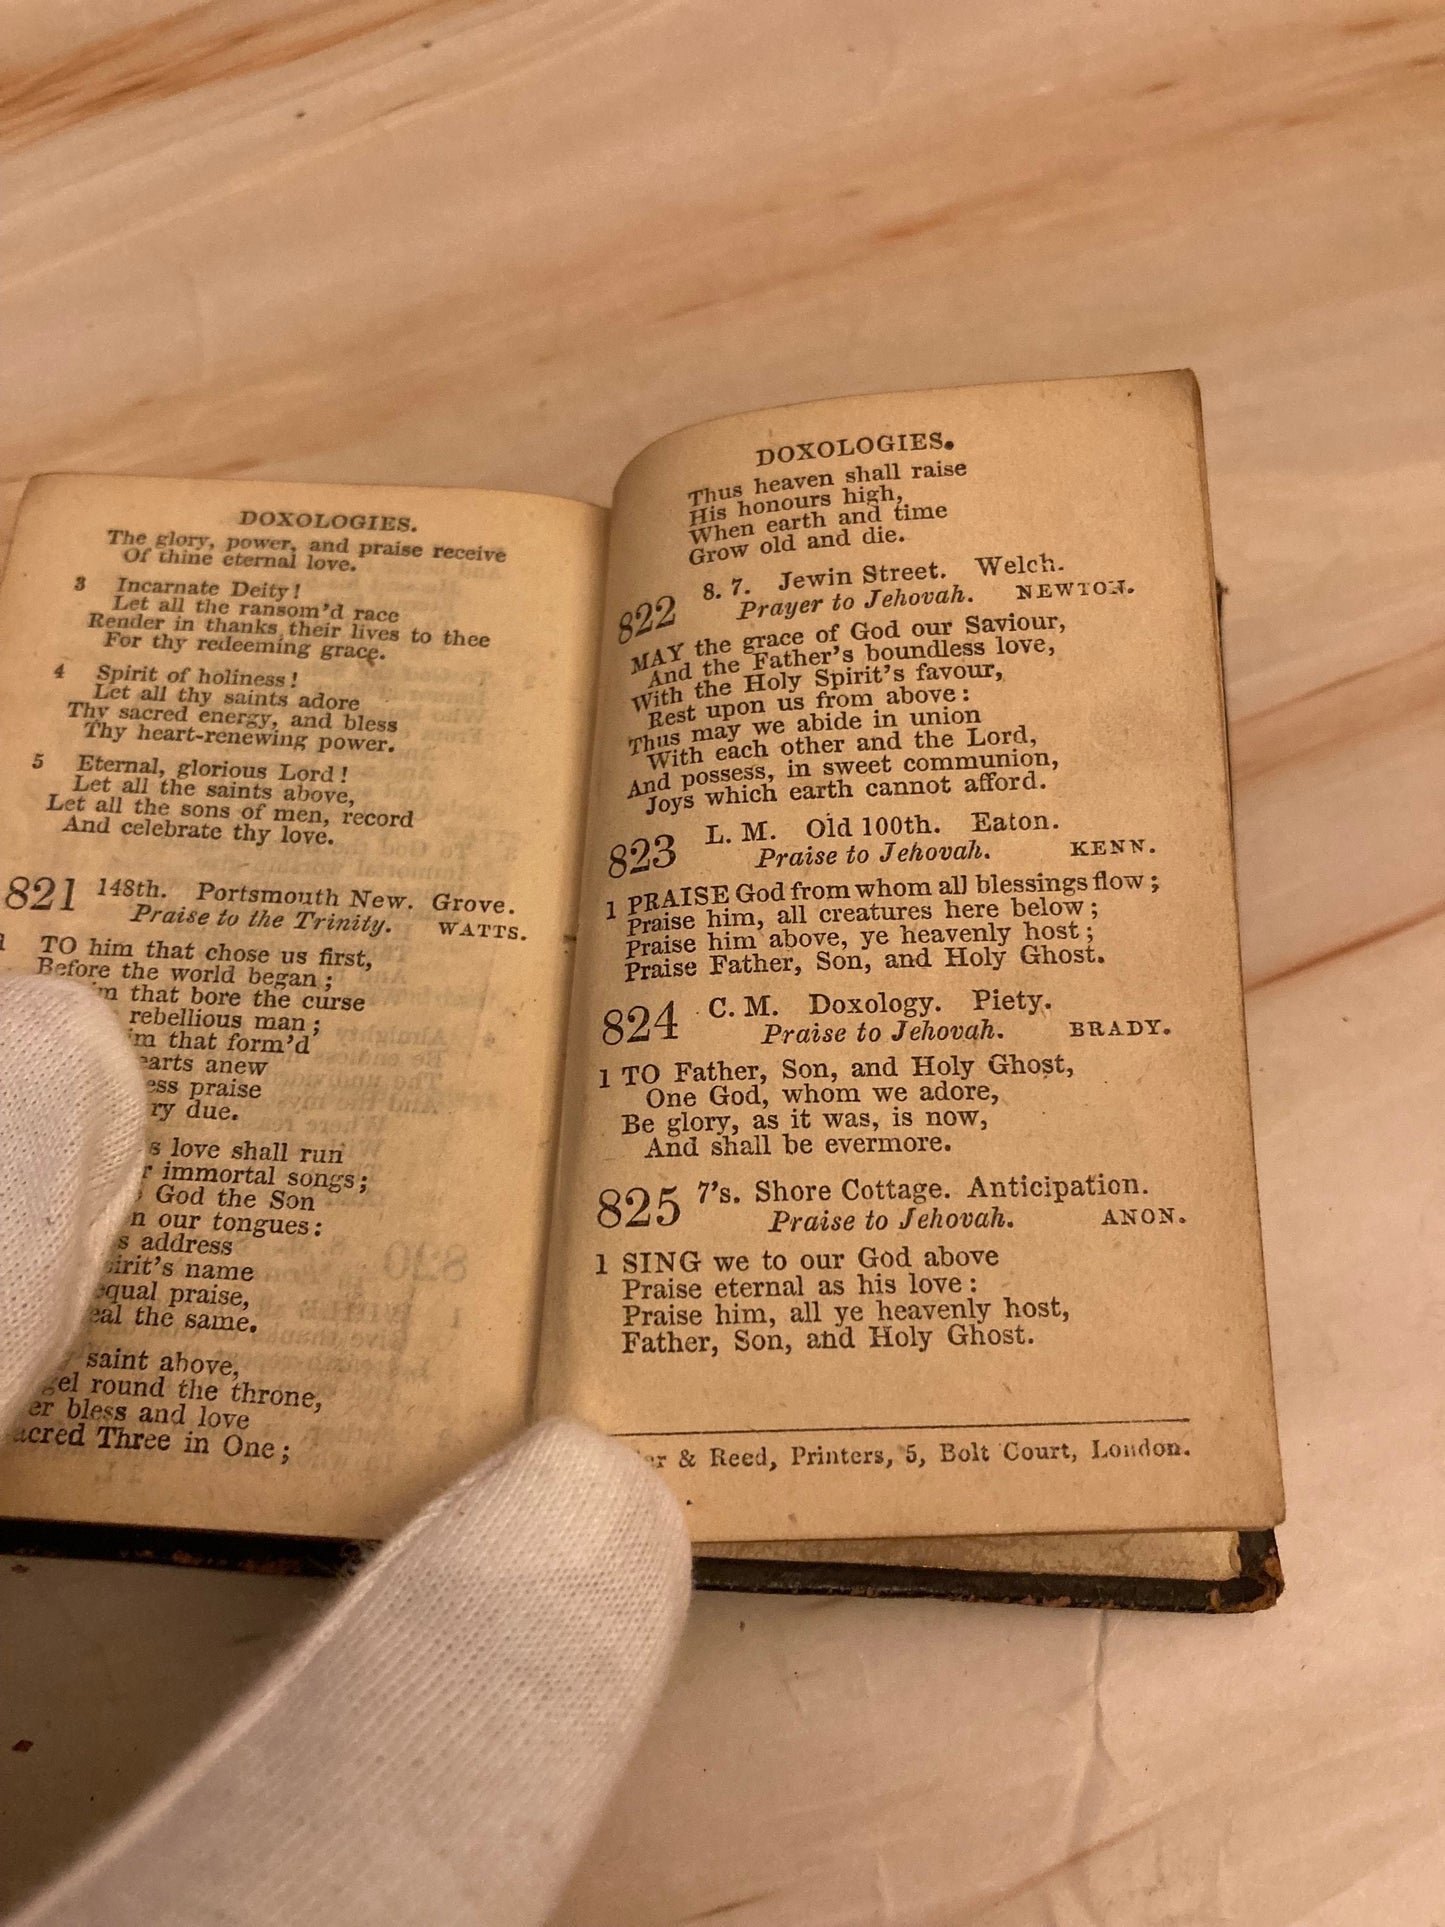 DOXOLOGIES.
The glory, power, and praise receive
Of thine eternal love.
3 Incarnate Deity!
Let all the ransom'd race
Render in thanks their lives to thee
For thy redeeming grace.
4 Spirit of holiness!
Let all thy saints adore
Thy sacred energy, and bless
Thy heart-renewing power.
5 Eternal, glorious Lord!
Let all the saints above,
Let all the sons of men, record
And celebrate thy love.
821 148th. Portsmouth New. Grove.
Praise to the Trinity. WATTS.
1 TO him that chose us first,
Before the world began;
that bore the curse
rebellious man;
that form'd
anew
praise
due.
love shall run
immortal songs;
God the Son
our tongues:
address
name
praise,
the same.
saint above,
round the throne,
bless and love
Three in One;
DOXOLOGIES.
Thus heaven shall raise
His honours high,
When earth and time
Grow old and die.
822 8. 7. Jewin Street. Welch.
Prayer to Jehovah. NEWTON.
MAY the grace of God our Saviour,
And the Father's boundless love,
With the Holy Spirit's favour,
Rest upon us from above:
Thus may we abide in union
With each other and the Lord,
And possess, in sweet communion,
Joys which earth cannot afford.
823 L. M. Old 100th. Eaton.
Praise to Jehovah. KENN.
1 PRAISE God from whom all blessings flow;
Praise him, all creatures here below;
Praise him above, ye heavenly host;
Praise Father, Son, and Holy Ghost.
824 C. M. Doxology. Piety.
Praise to Jehovah. BRADY.
1 TO Father, Son, and Holy Ghost,
One God, whom we adore,
Be glory, as it was, is now,
And shall be evermore.
825 7's. Shore Cottage. Anticipation.
Praise to Jehovah. ANON.
1 SING we to our God above
Praise eternal as his love:
Praise him, all ye heavenly host,
Father, Son, and Holy Ghost.
& Reed, Printers, 5, Bolt Court, London.